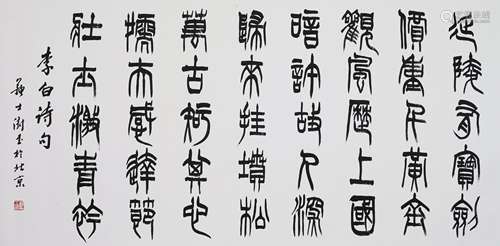 延陵有寶劍
價重千黃金
觀風歷上國
暗許故人深
歸來挂墳松
萬古知其心
懦夫感達節
壯士激青衿
李白詩句
蘇士澍書於北京